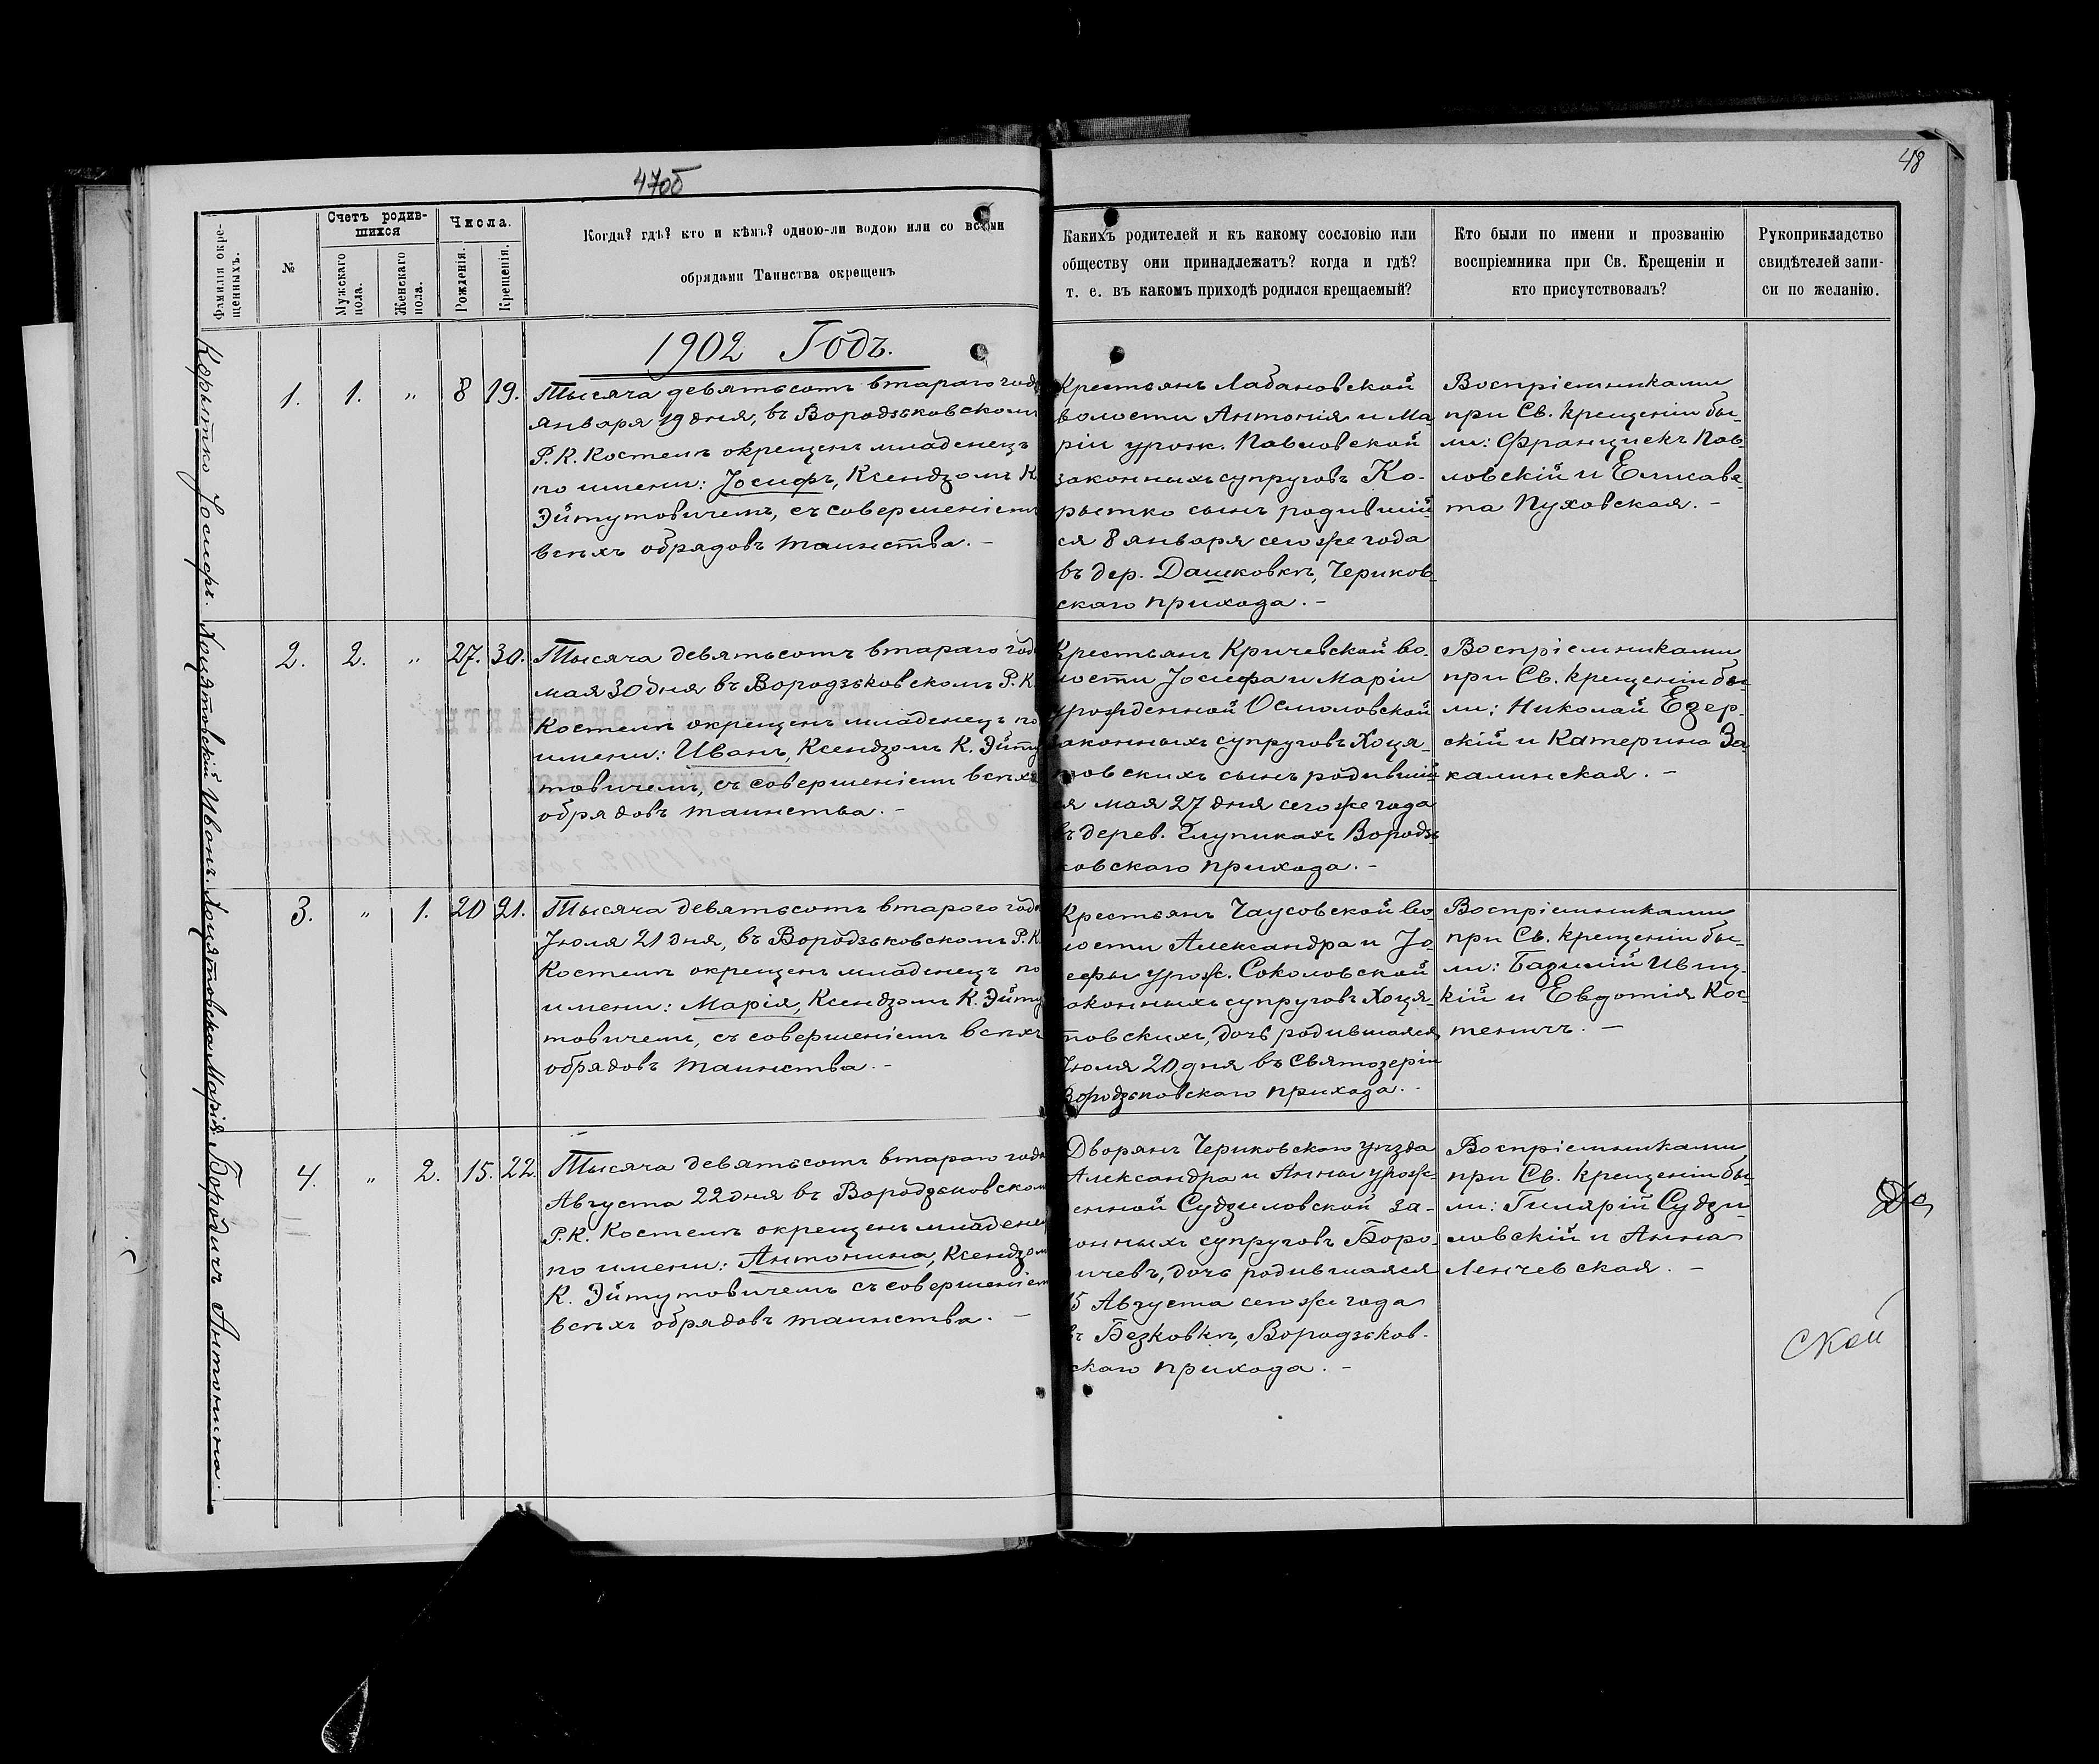 47об
48
Фамиліи окре-
щенныхъ.
№
Счетъ родив-
шихся
Мужскаго
пола.
Женскаго
пола.
Числа.
Рожденія.
Крещенія.
Когда? гдѣ? кто и кѣмъ? одною-ли водою или со всѣми
обрядами Таинства окрещенъ
Какихъ родителей и къ какому сословію или
обществу они принадлежатъ? когда и гдѣ?
т. е. въ какомъ приходѣ родился крещаемый?
Кто были по имени и прозванію
воспріемника при Св. Крещеніи и
кто присутствовалъ?
Рукоприкладство
свидѣтелей запи-
си по желанію.
1902 Годъ.
Корытко Іосифъ.
1. 1. „ 8 19.
Тысяча девятьсотъ втараго года
января 19 дня, въ Вородзьковскомъ
Р. К. Костелѣ окрещенъ младенецъ
по имени: Іосифъ, Ксендзомъ К.
Эйтутовичемъ, съ совершеніемъ
всѣхъ обрядовъ таинства. –
Крестьянъ Лабановской
волости Антонія и Ма-
ріи урож. Павловской
законныхъ супруговъ Ко-
рытко сынъ родившій-
ся 8 января сего же года
въ дер. Дашковкѣ, Чериков-
скаго прихода. –
Воспріемниками
при Св. крещеніи бы-
ли: Францискъ Пав-
ловскій и Елисаве-
та Пуховская. –
Хоцятовскій Иванъ.
2. 2. „ 27. 30.
Тысяча девятьсотъ втараго года
мая 30 дня въ Вородзьковскомъ Р. К.
Костелѣ окрещенъ младенецъ по
имени: Иванъ, Ксендзомъ К. Эйту
товичемъ, съ совершеніемъ всѣхъ
обрядовъ таинства. –
Крестьянъ Кричевской во-
лости Іосифа и Маріи
урожденной Осмоловской
законныхъ супруговъ Хоця-
товскихъ сынъ родившій-
ся мая 27 дня сего же года
въ дерев. Глупикахъ Вородзь-
ковскаго прихода. –
Воспріемниками
при Св. крещеніи бы-
ли: Николай Езер-
скій и Катерина За
калинская. –
Хоцятовская Марія.
3. „ 1. 20 21.
Тысяча девятьсотъ второго года
Іюля 21 дня, въ Вородзьковскомъ Р. К.
Костелѣ окрещенъ младенецъ по
имени: Марія, Ксендзомъ К. Эйту
товичемъ, съ совершеніемъ всѣхъ
обрядовъ таинства. –
Крестьянъ Чаусовской во-
лости Александра и Іо-
сефы урож. Соколовской
законныхъ супруговъ Хоця-
товскихъ, дочь родившаяся
Іюля 20 дня въ Святозеріи
Вородзьковскаго прихода. –
Воспріемниками
при Св. крещеніи бы-
ли: Базилій Ивиц-
кій и Евдотія Кос-
теничъ. –
Бородичъ Антонина.
4. „ 2. 15. 22.
Тысяча девятьсотъ втараго года
Августа 22 дня въ Вородзьковском
Р. К. Костелѣ окрещенъ младенец
по имени: Антонина, Ксендзом
К. Эйтутовичемъ съ совершеніем
всѣхъ обрядовъ таинства. –
Дворянъ Чериковскаго уѣзда
Александра и Анны урож-
денной Судзиловской за-
конныхъ супруговъ Боро-
дичевъ, дочь родившаяся
15 Августа сего же года
въ Безковкѣ, Вородзьков-
скаго прихода. –
Воспріемниками
при Св. крещеніи бы-
ли: Гилярій Судзи-
ловскій и Анна
Ленчевская. –
ской